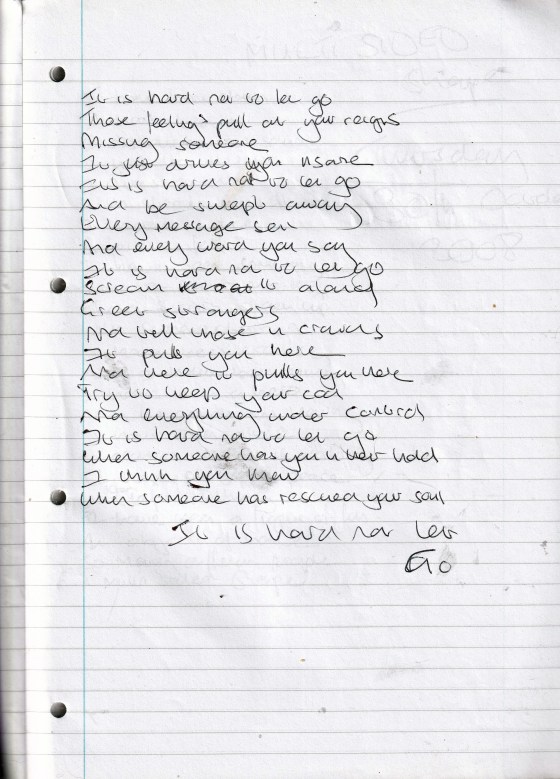 It is hard not to let go
Those feelings pull at your reigns
Missing someone
It just drives you insane
It is hard not to let go
And be swept away
Every message sent
And every word you say
It is hard not to let go
Scream it aloud
Greet strangers
And tell those in crowds
It pulls you here
And here it pulls you here
Try to keep your cool
And everything under control
It is hard not to let go
When someone has you in their hold
I think you know
When someone has rescued your soul
It is hard not let
Go